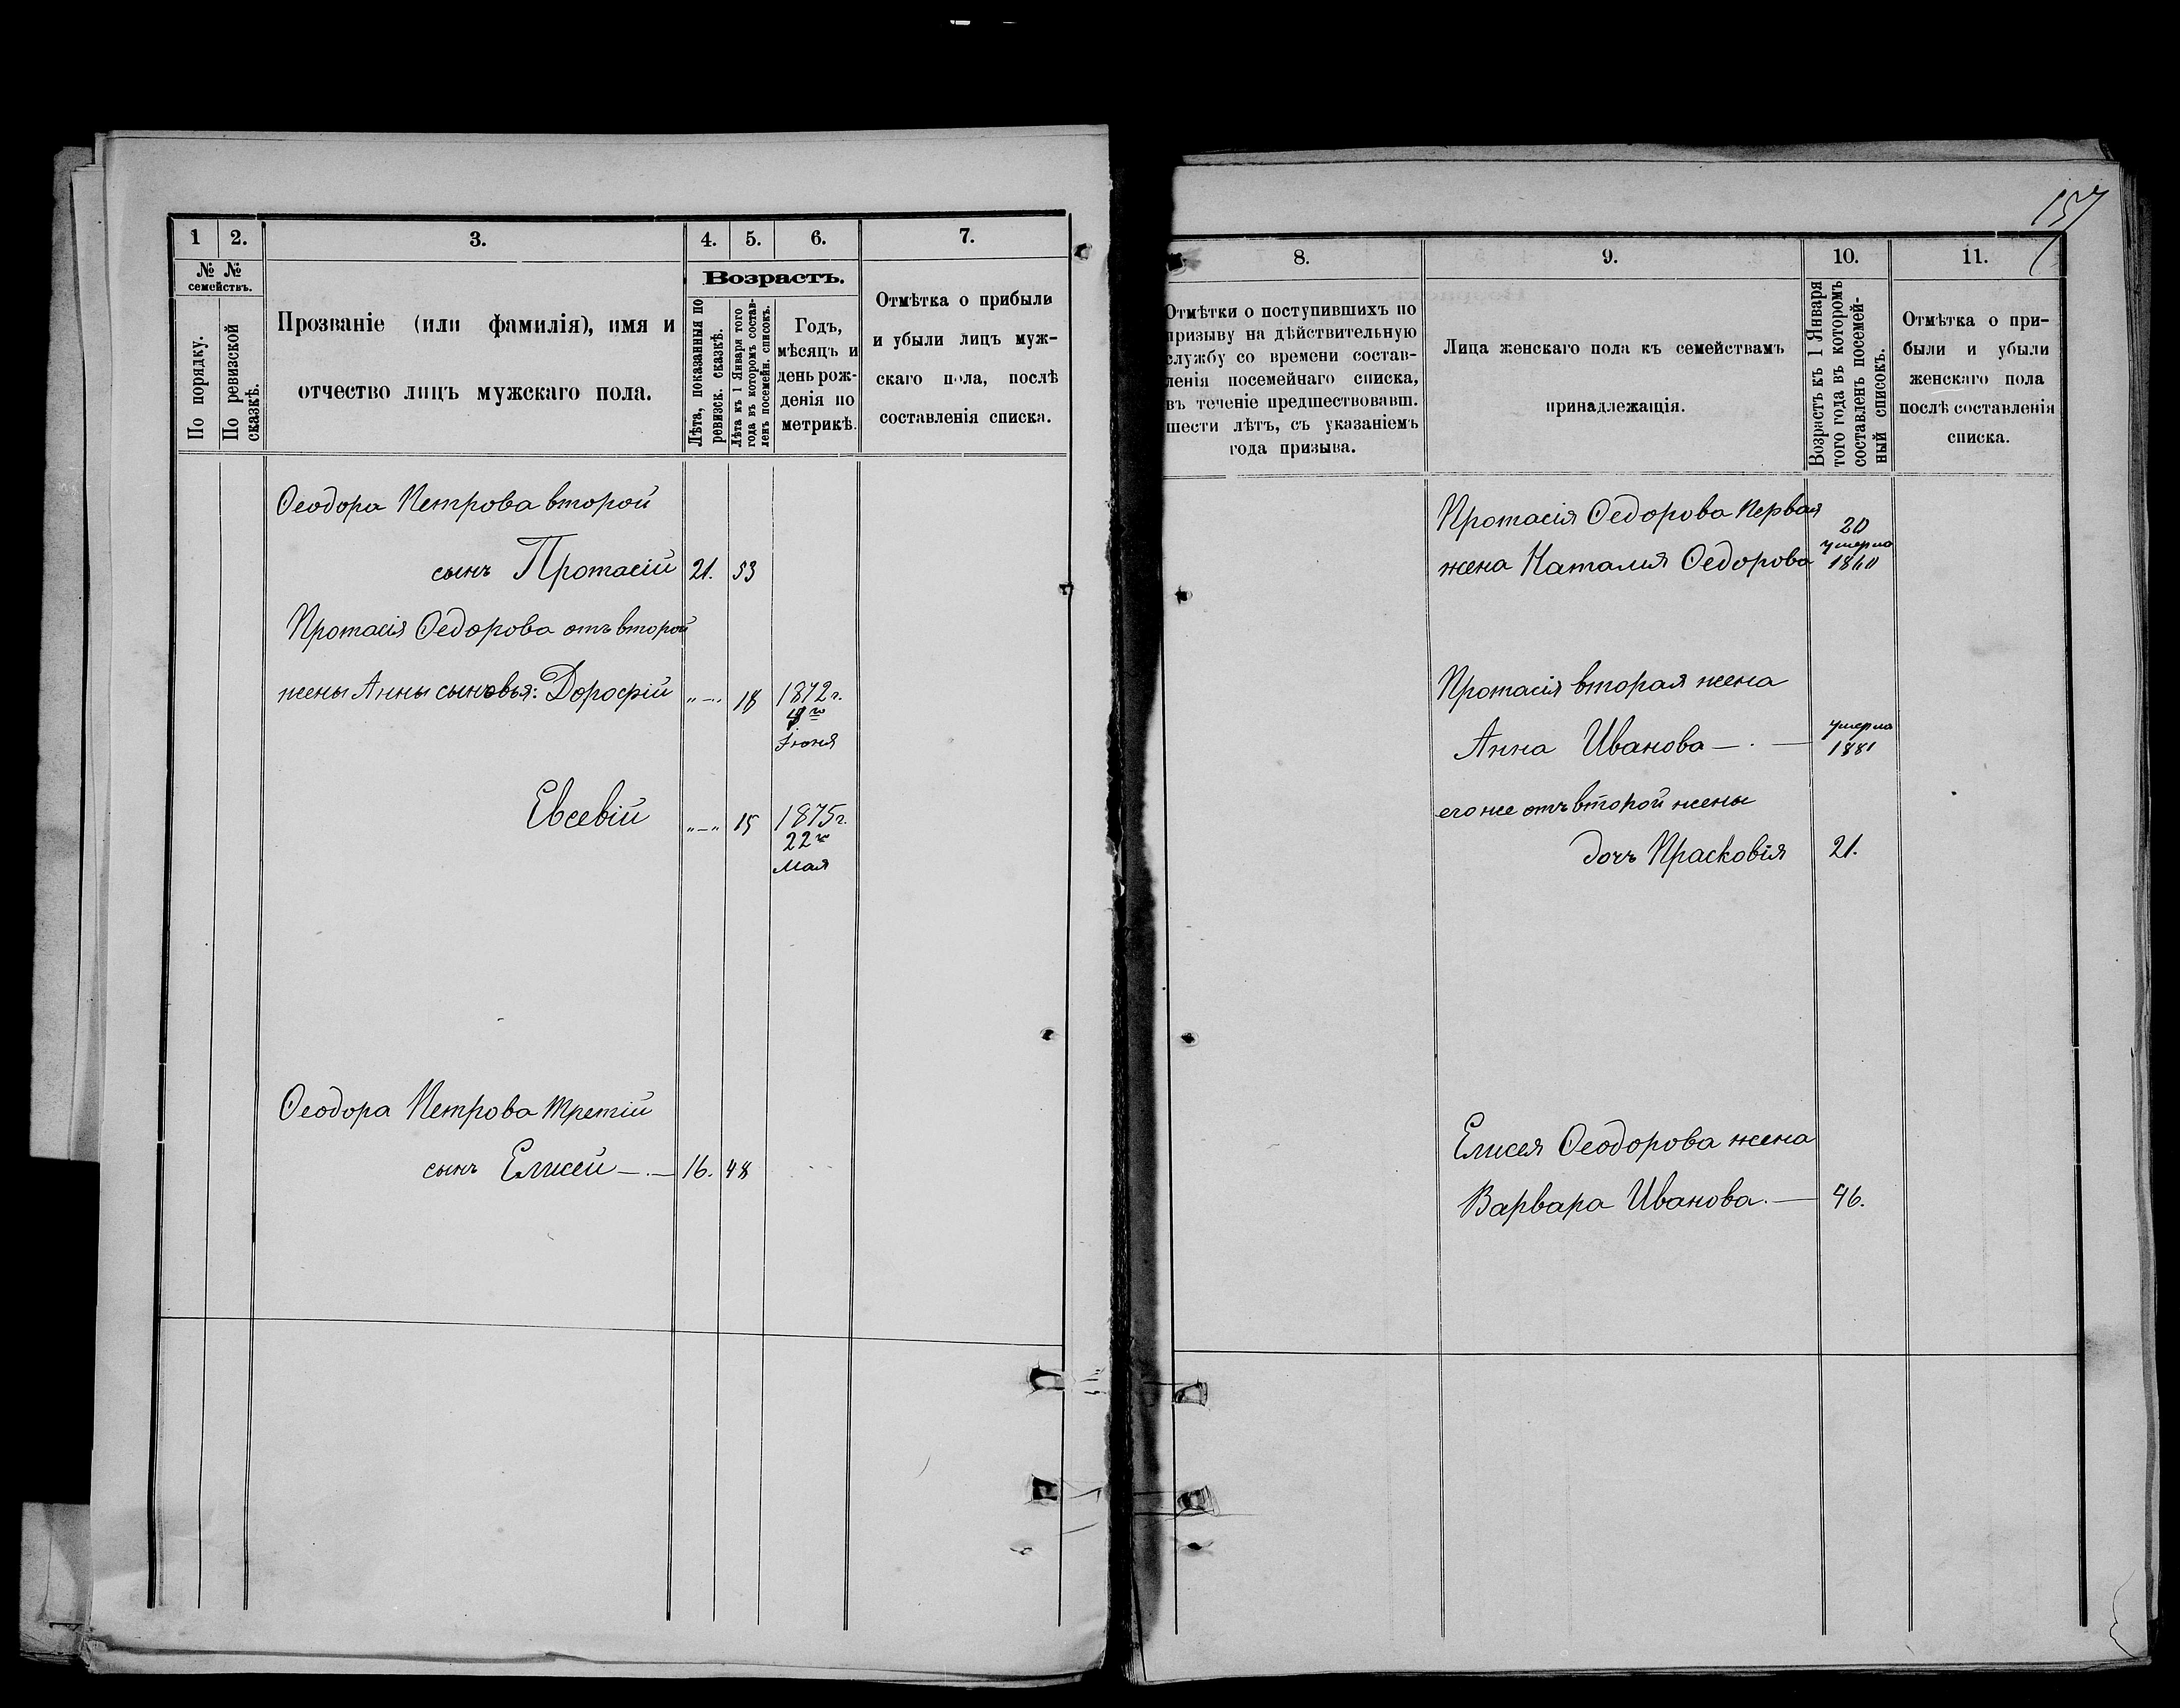 157
1 2. 3. 4. 5. 6. 7.
№ № семействъ.
По порядку.
По ревизской сказкѣ.
Прозваніе (или фамилія), имя и
отчество лицъ мужскаго пола.
Возрастъ.
Лѣта, показанныя по
ревизск. сказкѣ.
Лѣта къ 1 Января того
года въ которомъ состав-
ленъ посемейн. списокъ.
Годъ,
мѣсяцъ и
день рож-
денія по
метрикѣ.
Отмѣтка о прибыли
и убыли лицъ муж-
скаго пола, послѣ
составленія списка.
Ѳеодора Петрова второй
сынъ Протасій 21. 53
Протасія Ѳедорова отъ второй
жены Анны сыновья: Дорофій „—„ 18 1872 г.
го
Іюня
Евсевій „—„ 15 1875 г.
22 го
Мая
Ѳеодора Петрова третій
сынъ Елисей —.— 16. 48
8. 9. 10. 11.
Отмѣтки о поступившихъ по
призыву на дѣйствительную
службу со времени состав-
ленія посемейнаго списка,
въ теченіе предшествовавш.
шести лѣтъ, съ указаніемъ
года призыва.
Лица женскаго пола къ семействамъ
принадлежащія.
Возрастъ къ 1 Января
того года въ которомъ
составленъ посемей-
ный списокъ.
Отмѣтка о при-
были и убыли
женскаго пола
послѣ составленія
списка.
Протасія Ѳедорова первая
жена Наталия Ѳедорова 20
умерла
1860
Протасія вторая жена
Анна Иванова —.— умерла
1881
его же отъ второй жены
дочь Прасковія 21.
Елисея Ѳеодорова жена
Варвара Иванова.— 46.